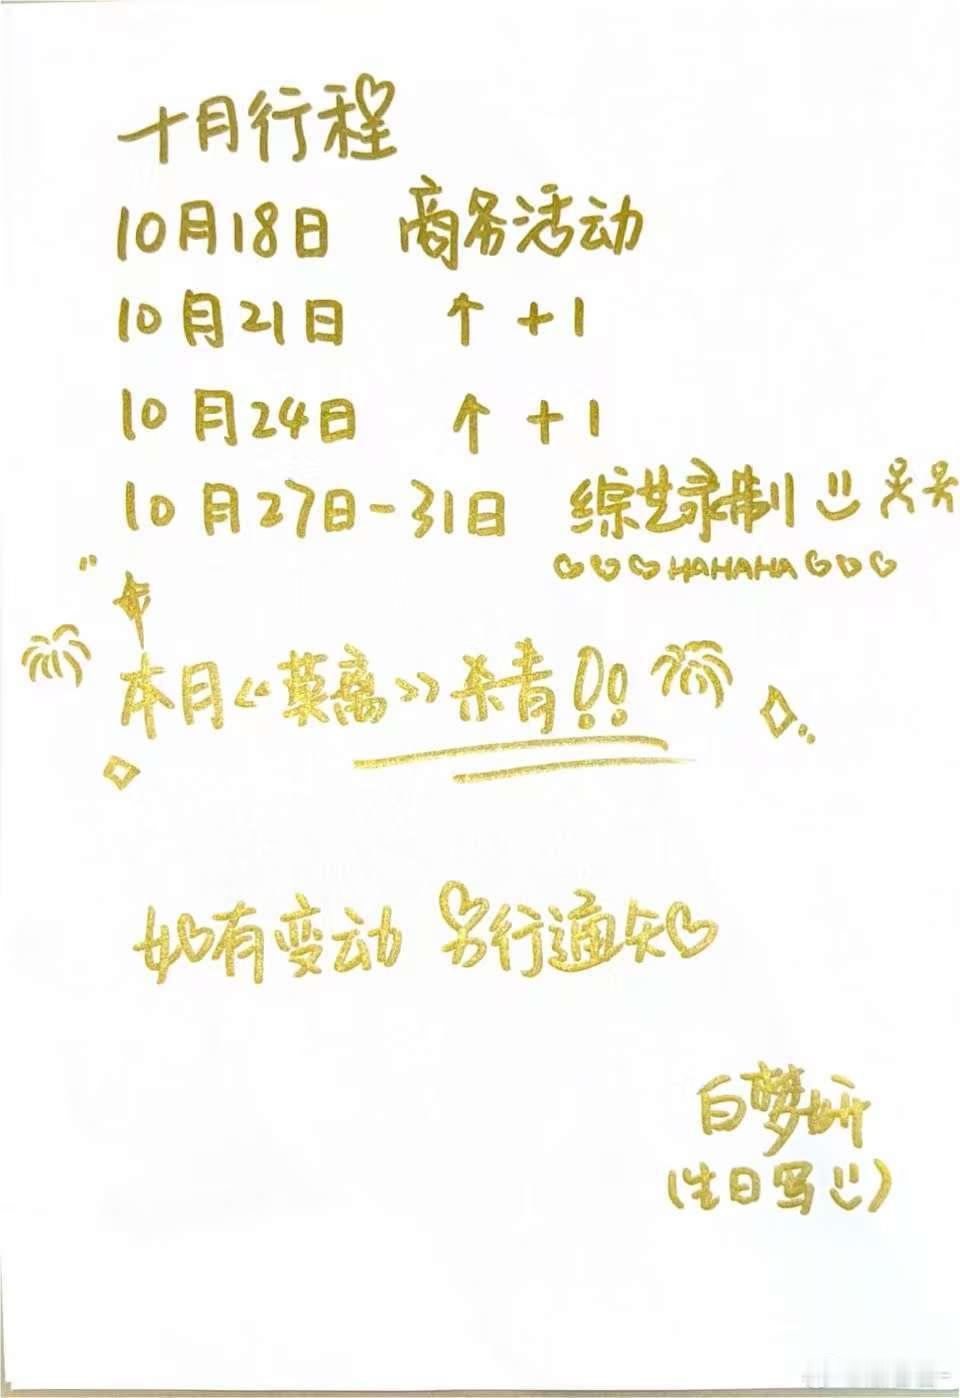 十月行程
10月18日 商务活动
10月21日 ↑ +1
10月24日 ↑ +1
10月27日-31日 综艺录制
HAHAHA
本月《莱离》杀青!!
如有变动 另行通知
白梦妍
(生日写)